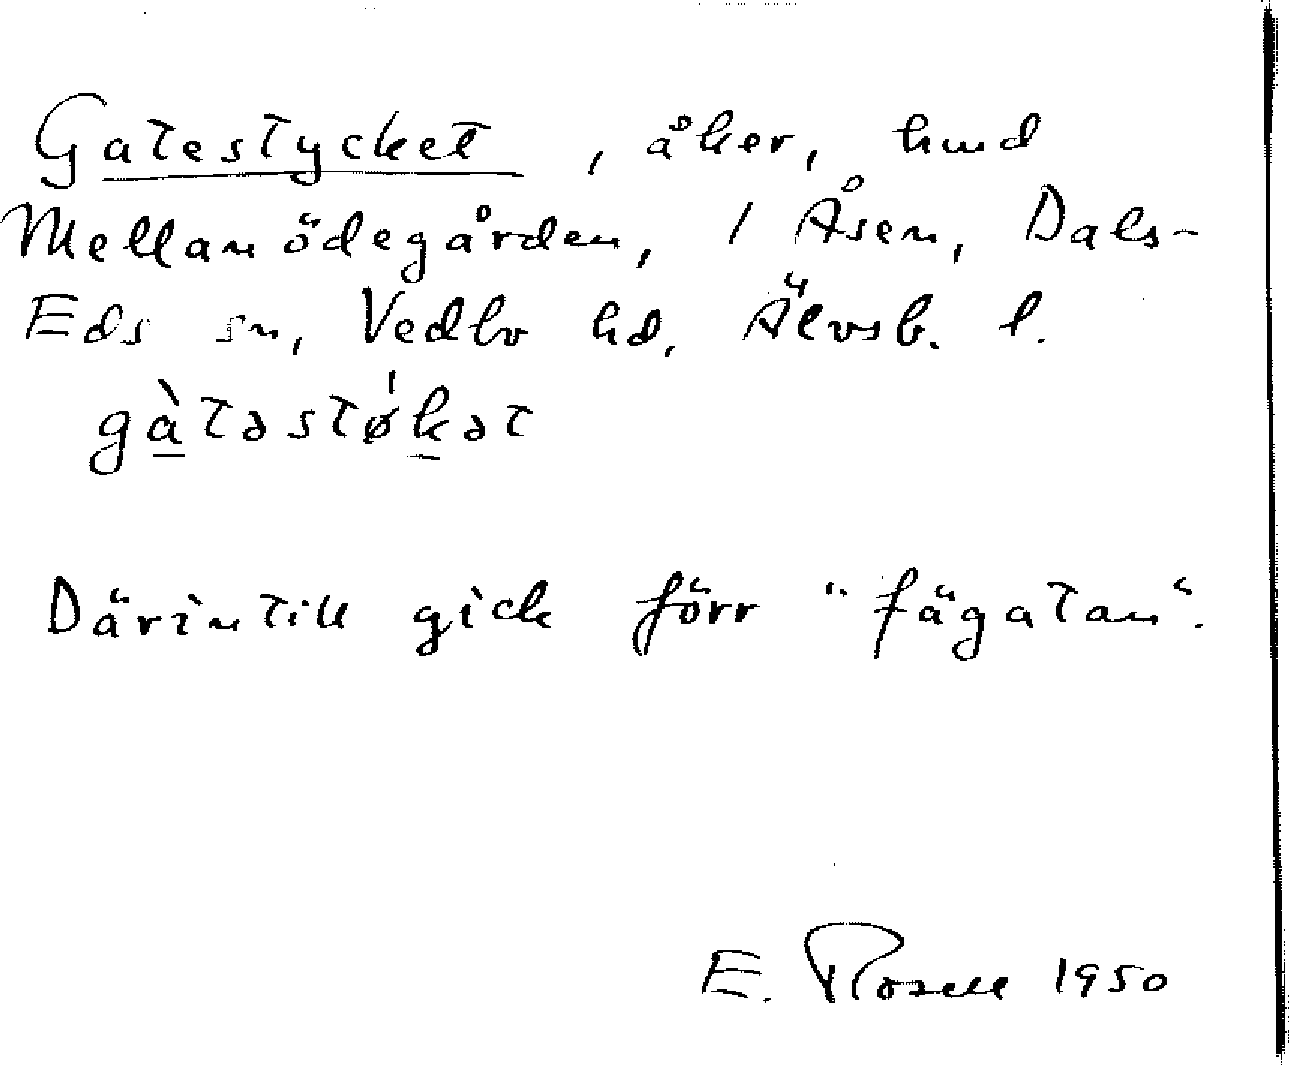 Gatestycket, åker, hmd
Mellanödegården, 1 Åsen, Dals-
Eds sn, Vedbo hd, Älvsb. l.
gàtəstø̍kət
Därintill gick förr "fägatan".
E. Rosell 1950